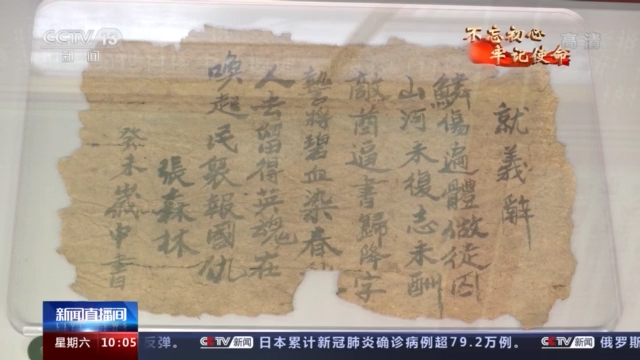 CCTV 13
新闻
不忘初心
牢记使命
高清
就義辭
鱗傷遍體做徒囚
山河未復志未酬
敵酋逼書歸降字
誓將碧血染春
人去留得英魂在
喚起民衆報國仇
張森林
癸未歲申書
新闻直播间
星期六 10:05 反弹。 CCTV新闻 日本累计新冠肺炎确诊病例超79.2万例。 CCTV新闻 俄罗斯